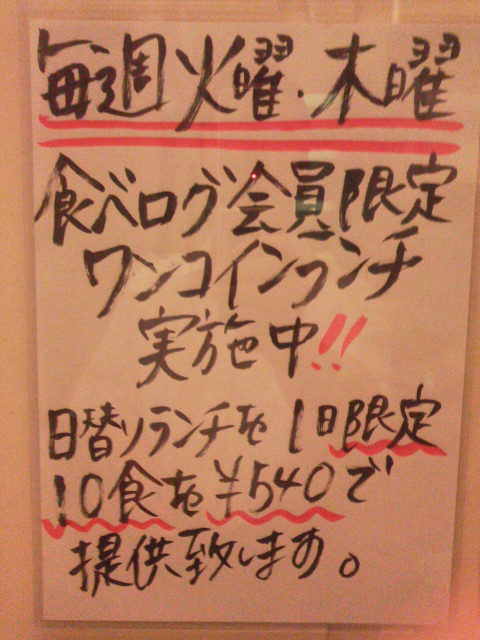 毎週火曜・木曜
食べログ会員限定
ワンコインランチ
実施中!!
日替りランチを1日限定
10食を¥540で
提供致します。